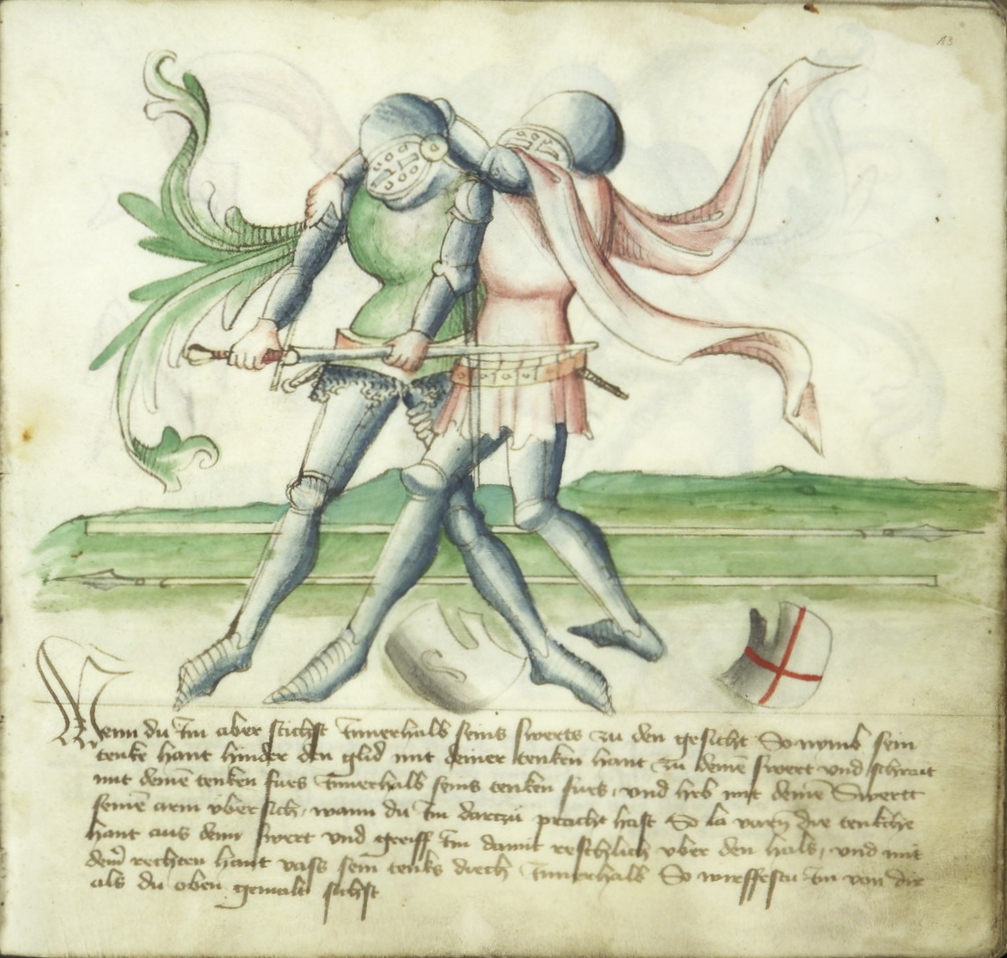 13
Wenn du Im aber stichst Innerhalb seins swerts zu den gesicht So nymb sein
tenke hant hinder den glid mit deiner tenken hant zu deinē swert und schreit
mit deinē tenken fues Innerhalb seins tenken fues, und heb mit deinē Swertt
seinē arm vber sich, wann du Im dartzu pracht hast So la varn die tenckhe
hant aus dem swert und greiff Im damit reschlich vber den hals, und mit
deīr rechten hant vass sein tenks diech Innerhalb So wirffestu Im von dir
als du oben gemalt sichst